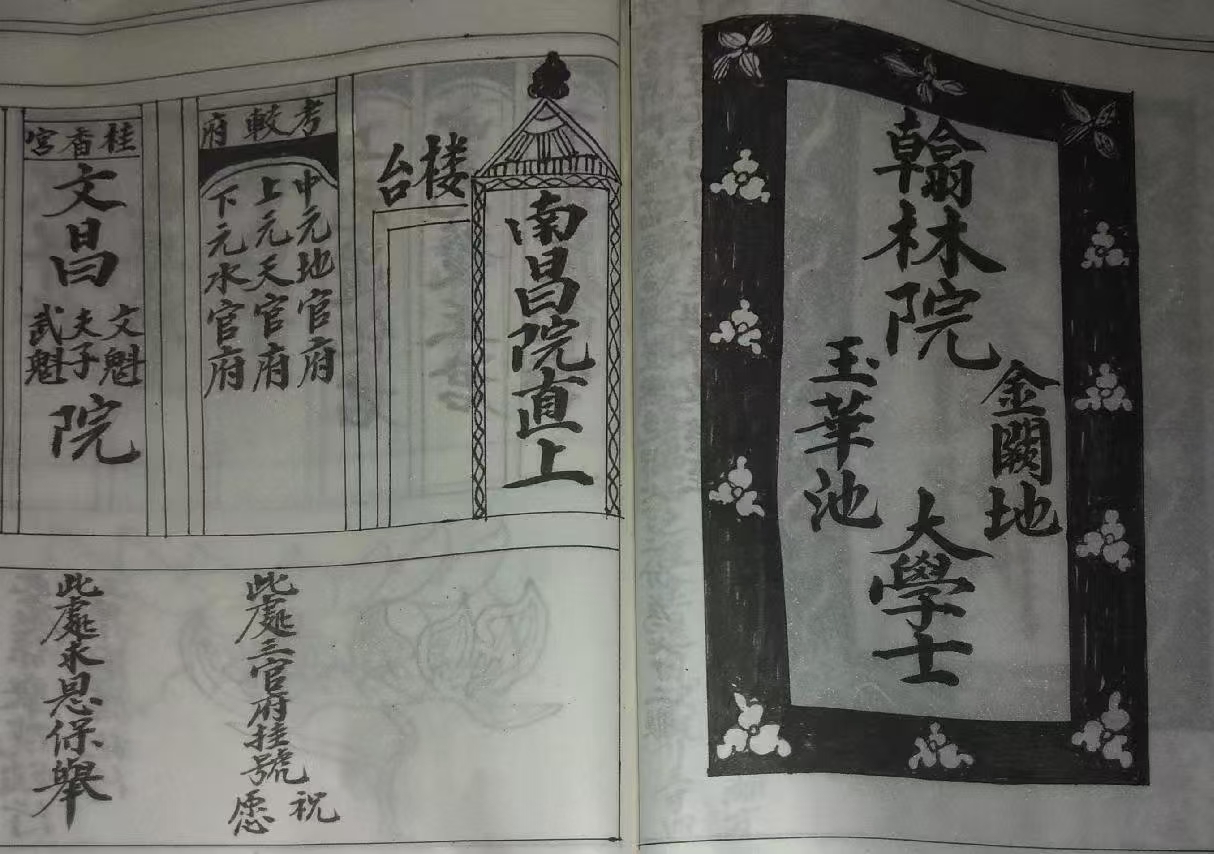 翰林院
金闕地
玉華池
大學士
南昌院直上
楼台
考較府
中元地官府
上元天官府
下元水官府
桂香宮
文昌
文魁
夫子
武魁
院
此處三官府挂號
祝愿
此處求恩保舉